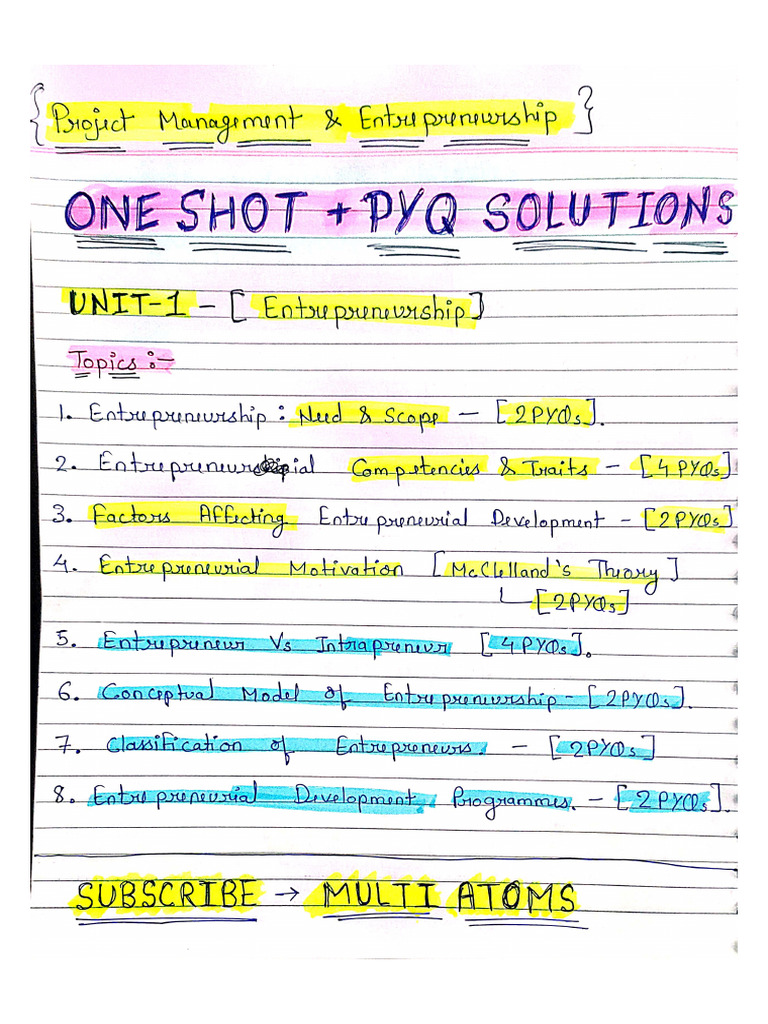 {Project Management & Entrepreneurship}
ONE SHOT + PYQ SOLUTIONS
UNIT-1 – [Entrepreneurship]
Topics :-
1. Entrepreneurship : Need & Scope – [2PYQs].
2. Entrepreneurial Competencies & Traits – [4PYQs]
3. Factors Affecting Entrepreneurial Development – [2PYQs]
4. Entrepreneurial Motivation [McClelland's Theory]
[2PYQs]
5. Entrepreneur Vs Intrapreneur [4PYQs].
6. Conceptual Model of Entrepreneurship – [2PYQs].
7. Classification of Entrepreneurs. – [2PYQs]
8. Entrepreneurial Development Programmes. – [2PYQs].
SUBSCRIBE → MULTI ATOMS